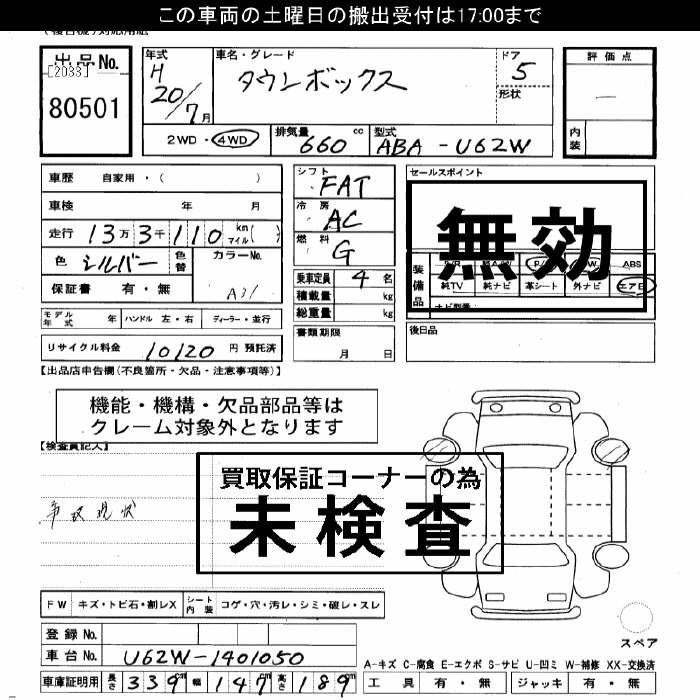 この車両の土曜日の搬出受付は17:00まで
出品No.
[2033]
80501
年式
H
20/7月
車名・グレード
タウンボックス
ドア
5
形状
評価点
内装
2WD・4WD
排気量
660 cc
型式
ABA-U62W
車歴 自家用・( )
車検 年 月
走行 13万3千110 km マイル( )
色 シルバー 色替
カラーNo.
A31
保証書 有・無
シフト
FAT
冷房
AC
燃料
G
乗車定員 4 名
積載量 kg
総重量 kg
セールスポイント
無効
装備品
ABS
純TV
純ナビ
革シート
外ナビ
エアB
モデル年式 年 ハンドル 左・右 ディーラー・並行
リサイクル料金 10120 円 預託済
書類期限
月 日
後日品
【出品店申告欄(不良箇所・欠品・注意事項等)】
機能・機構・欠品部品等は
クレーム対象外となります
【検査員記入】
買取保証コーナーの為
未検査
事故現状
FW キズ・トビ石・割レX
シート内装 コゲ・穴・汚レ・シミ・破レ・スレ
登録No.
車台No. U62W-1401050
車庫証明用 長さ 339m 幅 147m 高さ 189m
スペア
A-キズ C-腐食 E-エクボ S-サビ U-凹ミ W-補修 XX-交換済
工具 有・無 ジャッキ 有・無